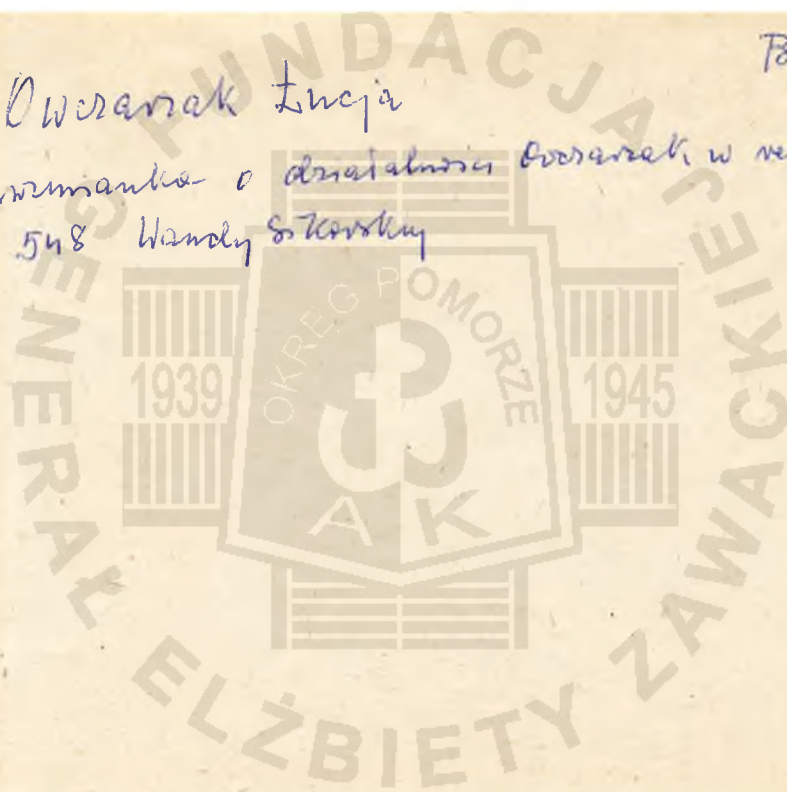 Owczarzak Łucja
wzmianka o działalności Owczarzak w
548 Wandy Sikorskiej
FUNDACJA GENERAŁ ELŻBIETY ZAWACKIEJ
OKRĘG POMORZE
1939 1945
AK